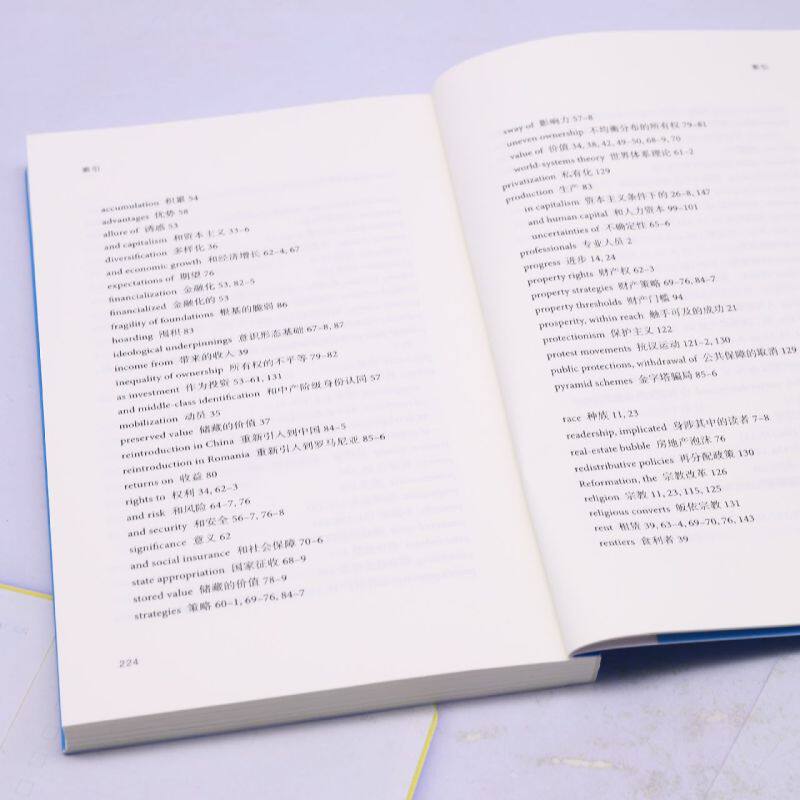 索引
accumulation 积累 54
advantages 优势 58
allure of 诱惑 53
and capitalism 和资本主义 33–6
diversification 多样化 36
and economic growth 和经济增长 62–4, 67
expectations of 期望 76
financialization 金融化 53, 82–5
financialized 金融化的 53
fragility of foundations 根基的脆弱 86
hoarding 囤积 83
ideological underpinnings 意识形态基础 67–8, 87
income from 带来的收入 39
inequality of ownership 所有权的不平等 79–82
as investment 作为投资 53–61, 131
and middle-class identification 和中产阶级身份认同 57
mobilization 动员 35
preserved value 储藏的价值 37
reintroduction in China 重新引入到中国 84–5
reintroduction in Romania 重新引入到罗马尼亚 85–6
returns on 收益 80
rights to 权利 34, 62–3
and risk 和风险 64–7, 76
and security 和安全 56–7, 76–8
significance 意义 62
and social insurance 和社会保障 70–6
state appropriation 国家征收 68–9
stored value 储藏的价值 78–9
strategies 策略 60–1, 69–76, 84–7
224
索引
sway of 影响力 57–8
uneven ownership 不均衡分布的所有权 79–81
value of 价值 34, 38, 42, 49–50, 68–9, 70
world-systems theory 世界体系理论 61–2
privatization 私有化 129
production 生产 83
in capitalism 资本主义条件下的 26–8, 147
and human capital 和人力资本 99–101
uncertainties of 不确定性 65–6
professionals 专业人员 2
progress 进步 14, 24
property rights 财产权 62–3
property strategies 财产策略 69–76, 84–7
property thresholds 财产门槛 94
prosperity, within reach 触手可及的成功 21
protectionism 保护主义 122
protest movements 抗议运动 121–2, 130
public protections, withdrawal of 公共保障的取消 129
pyramid schemes 金字塔骗局 85–6
race 种族 11, 23
readership, implicated 身涉其中的读者 7–8
real-estate bubble 房地产泡沫 76
redistributive policies 再分配政策 130
Reformation, the 宗教改革 126
religion 宗教 11, 23, 115, 125
religious converts 皈依宗教 131
rent 租赁 39, 63–4, 69–70, 76, 143
rentiers 食利者 39